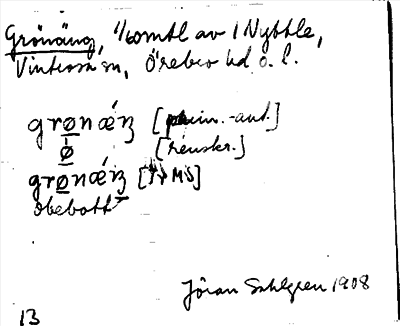 Grönäng, 1/60 mtl av 1 Nybble,
Vintrosa sn, Örebro hd ö. l.
grønǽŋ [prim.-ant.]
ø [renskr.]
grønǽŋ [MS]
obebott
Jöran Sahlgren 1908
13